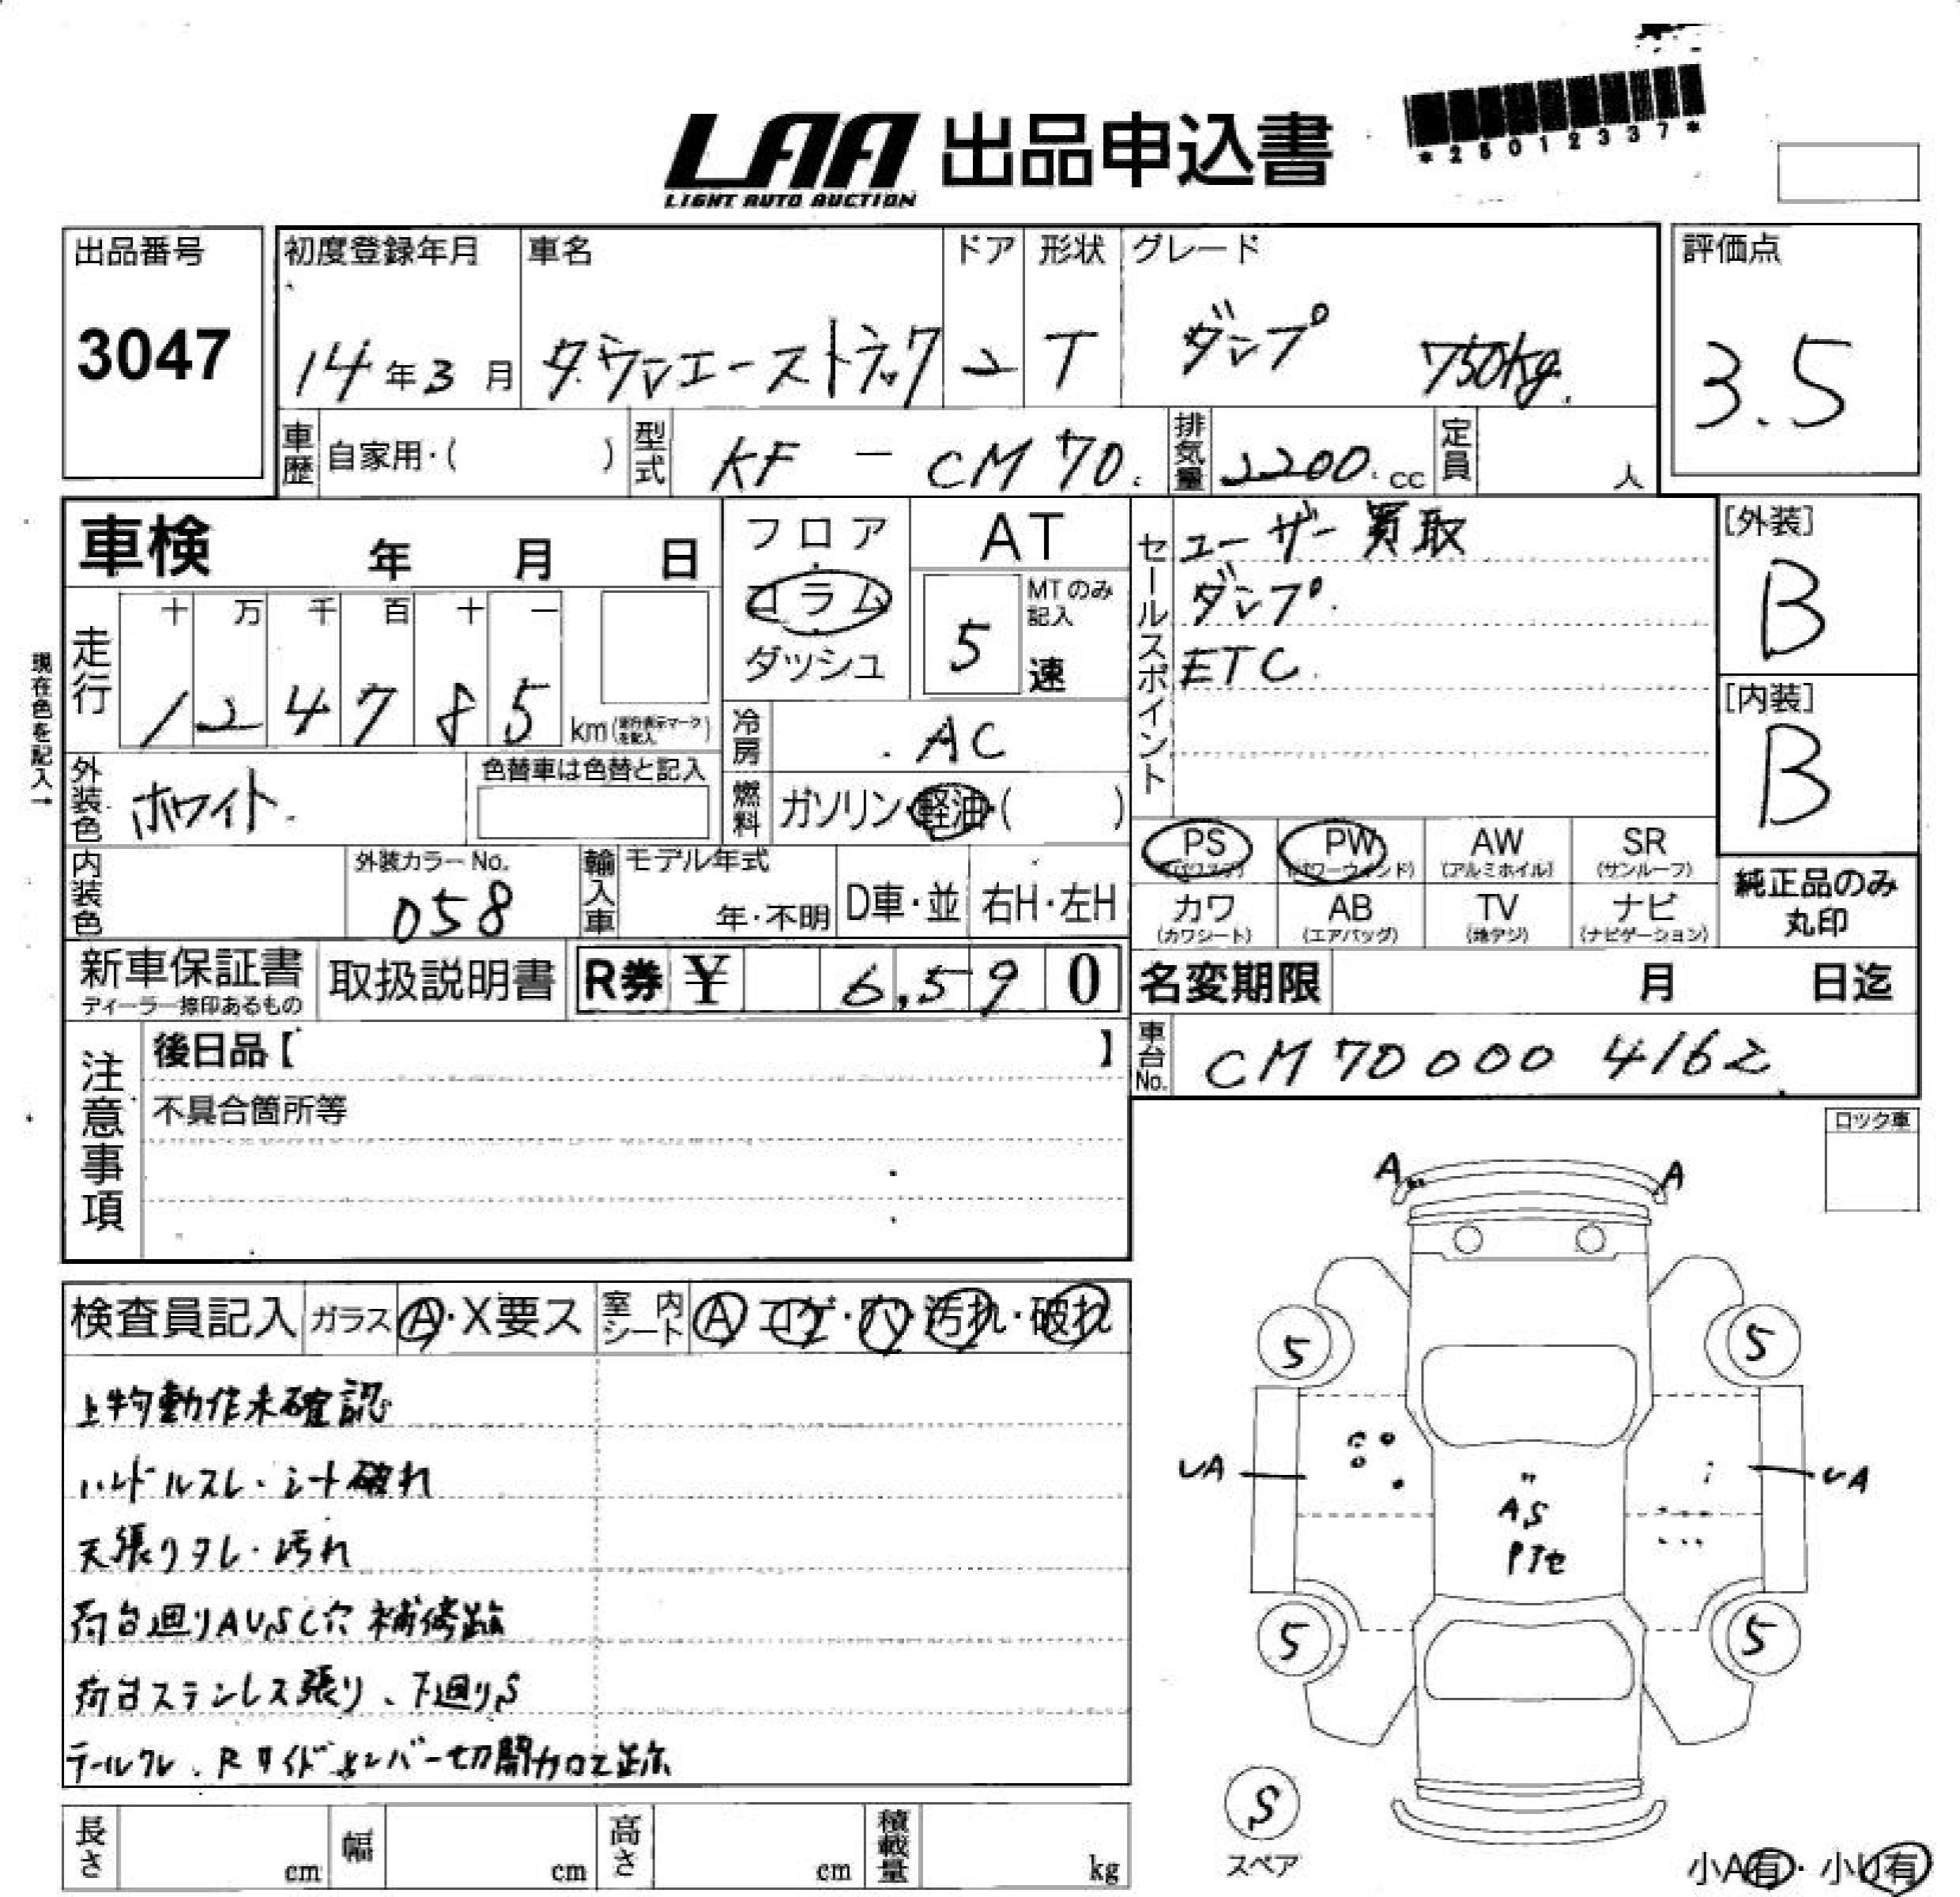 LAA 出品申込書
LIGHT AUTO AUCTION
*25012337*
出品番号
3047
初度登録年月
14年3月
車名
タウンエーストラック
ドア
2
形状
T
グレード
ダンプ 750kg.
評価点
3.5
車歴 自家用・( )
型式 KF - CM70.
排気量 2200.cc
定員 人
車検 年 月 日
フロア
コラム
ダッシュ
AT
MTのみ記入
5速
セールスポイント
ユーザー買取
ダンプ.
ETC.
[外装]
B
[内装]
B
現在色を記入→
走行
十 万 千 百 十 一
1 2 4 7 8 5 km(走行表示マークを記入)
冷房 AC
外装色 ホワイト.
色替車は色替と記入
燃料 ガソリン・軽油・( )
PS (パワステ)
PW (パワーウィンド)
AW (アルミホイル)
SR (サンルーフ)
カワ (カワシート)
AB (エアバッグ)
TV (地デジ)
ナビ (ナビゲーション)
純正品のみ
丸印
内装色
外装カラーNo.
058
輸入車
モデル年式
年・不明
D車・並
右H・左H
新車保証書
ディーラー捺印あるもの
取扱説明書
R券 ¥ 6,590
名変期限 月 日迄
車台No. CM70 000 4162
注意事項
後日品【 】
不具合箇所等
ロック車
検査員記入
ガラス A・X要ス
室内シート A コゲ・穴・汚れ・破れ
上物動作未確認
ハンドルスレ・シート破れ
天張りタレ・汚れ
荷台廻りAUSC穴 補修跡
荷台ステンレス張り、下廻りS
テールワレ、Rサイドメンバー切開加工跡
A A
5 5
UA UA
AS
5 5
S
スペア
小A有・小U有
長さ cm
幅 cm
高さ cm
積載量 kg